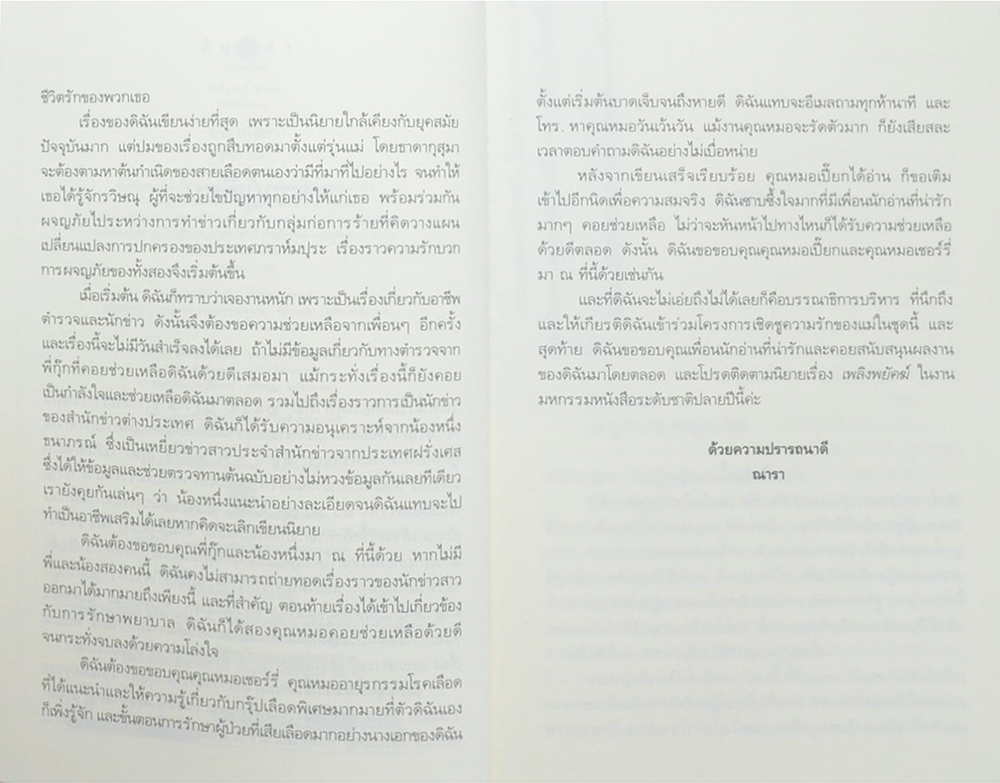 ชีวิตรักของพวกเธอ
เรื่องของดิฉันเขียนง่ายที่สุด เพราะเป็นนิยายใกล้เคียงกับยุคสมัย
ปัจจุบันมาก แต่ปมของเรื่องถูกสืบทอดมาตั้งแต่รุ่นแม่ โดยธาดากุสุมา
จะต้องตามหาต้นกำเนิดของสายเลือดตนเองว่ามีที่มาที่ไปอย่างไร จนทำให้
เธอได้รู้จักรวิษณุ ผู้ที่จะช่วยไขปัญหาทุกอย่างให้แก่เธอ พร้อมร่วมกัน
ผจญภัยไประหว่างการทำข่าวเกี่ยวกับกลุ่มก่อการร้ายที่คิดวางแผน
เปลี่ยนแปลงการปกครองของประเทศภราห์มปุระ เรื่องราวความรักบวก
การผจญภัยของทั้งสองจึงเริ่มต้นขึ้น
เมื่อเริ่มต้น ดิฉันก็ทราบว่าเจองานหนัก เพราะเป็นเรื่องเกี่ยวกับอาชีพ
ตำรวจและนักข่าว ดังนั้นจึงต้องขอความช่วยเหลือจากเพื่อนๆ อีกครั้ง
และเรื่องนี้จะไม่มีวันสำเร็จลงได้เลย ถ้าไม่มีข้อมูลเกี่ยวกับทางตำรวจจาก
พี่กุ๊กที่คอยช่วยเหลือดิฉันด้วยดีเสมอมา แม้กระทั่งเรื่องนี้ก็ยังคอย
เป็นกำลังใจและช่วยเหลือดิฉันมาตลอด รวมไปถึงเรื่องราวการเป็นนักข่าว
ของสำนักข่าวต่างประเทศ ดิฉันก็ได้รับความอนุเคราะห์จากน้องหนึ่ง
ธนาภรณ์ ซึ่งเป็นเหยี่ยวข่าวสาวประจำสำนักข่าวจากประเทศฝรั่งเศส
ซึ่งได้ให้ข้อมูลและช่วยตรวจทานต้นฉบับอย่างไม่หวงข้อมูลกันเลยทีเดียว
เรายังคุยกันเล่นๆ ว่า น้องหนึ่งแนะนำอย่างละเอียดจนดิฉันแทบจะไป
ทำเป็นอาชีพเสริมได้เลยหากคิดจะเลิกเขียนนิยาย
ดิฉันต้องขอขอบคุณพี่กุ๊กและน้องหนึ่งมา ณ ที่นี้ด้วย หากไม่มี
พี่และน้องสองคนนี้ ดิฉันคงไม่สามารถถ่ายทอดเรื่องราวของนักข่าวสาว
ออกมาได้มากมายถึงเพียงนี้ และที่สำคัญ ตอนท้ายเรื่องได้เข้าไปเกี่ยวข้อง
กับการรักษาพยาบาล ดิฉันก็ได้สองคุณหมอคอยช่วยเหลือด้วยดี
จนกระทั่งจบลงด้วยความโล่งใจ
ดิฉันต้องขอขอบคุณคุณหมอเชอร์รี่ คุณหมออายุรกรรมโรคเลือด
ที่ได้แนะนำและให้ความรู้เกี่ยวกับกรุ๊ปเลือดพิเศษมากมายที่ตัวดิฉันเอง
ก็เพิ่งรู้จัก และขั้นตอนการรักษาผู้ป่วยที่เสียเลือดมากอย่างนางเอกของดิฉัน
ตั้งแต่เริ่มต้นบาดเจ็บจนถึงหายดี ดิฉันแทบจะอีเมลถามทุกห้านาที และ
โทร. หาคุณหมอวันเว้นวัน แม้งานคุณหมอจะรัดตัวมาก ก็ยังเสียสละ
เวลาตอบคำถามดิฉันอย่างไม่เบื่อหน่าย
หลังจากเขียนเสร็จเรียบร้อย คุณหมอเปี๊ยกได้อ่าน ก็ขอเติม
เข้าไปอีกนิดเพื่อความสมจริง ดิฉันซาบซึ้งใจมากที่มีเพื่อนนักอ่านที่น่ารัก
มากๆ คอยช่วยเหลือ ไม่ว่าจะหันหน้าไปทางไหนก็ได้รับความช่วยเหลือ
ด้วยดีตลอด ดังนั้น ดิฉันขอขอบคุณคุณหมอเปี๊ยกและคุณหมอเชอร์รี่
มา ณ ที่นี้ด้วยเช่นกัน
และที่ดิฉันจะไม่เอ่ยถึงไม่ได้เลยก็คือบรรณาธิการบริหาร ที่นึกถึง
และให้เกียรติดิฉันเข้าร่วมโครงการเชิดชูความรักของแม่ในชุดนี้ และ
สุดท้าย ดิฉันขอขอบคุณเพื่อนนักอ่านที่น่ารักและคอยสนับสนุนผลงาน
ของดิฉันมาโดยตลอด และโปรดติดตามนิยายเรื่อง เพลิงพยัคฆ์ ในงาน
มหกรรมหนังสือระดับชาติปลายปีนี้ค่ะ
ด้วยความปรารถนาดี
ณารา